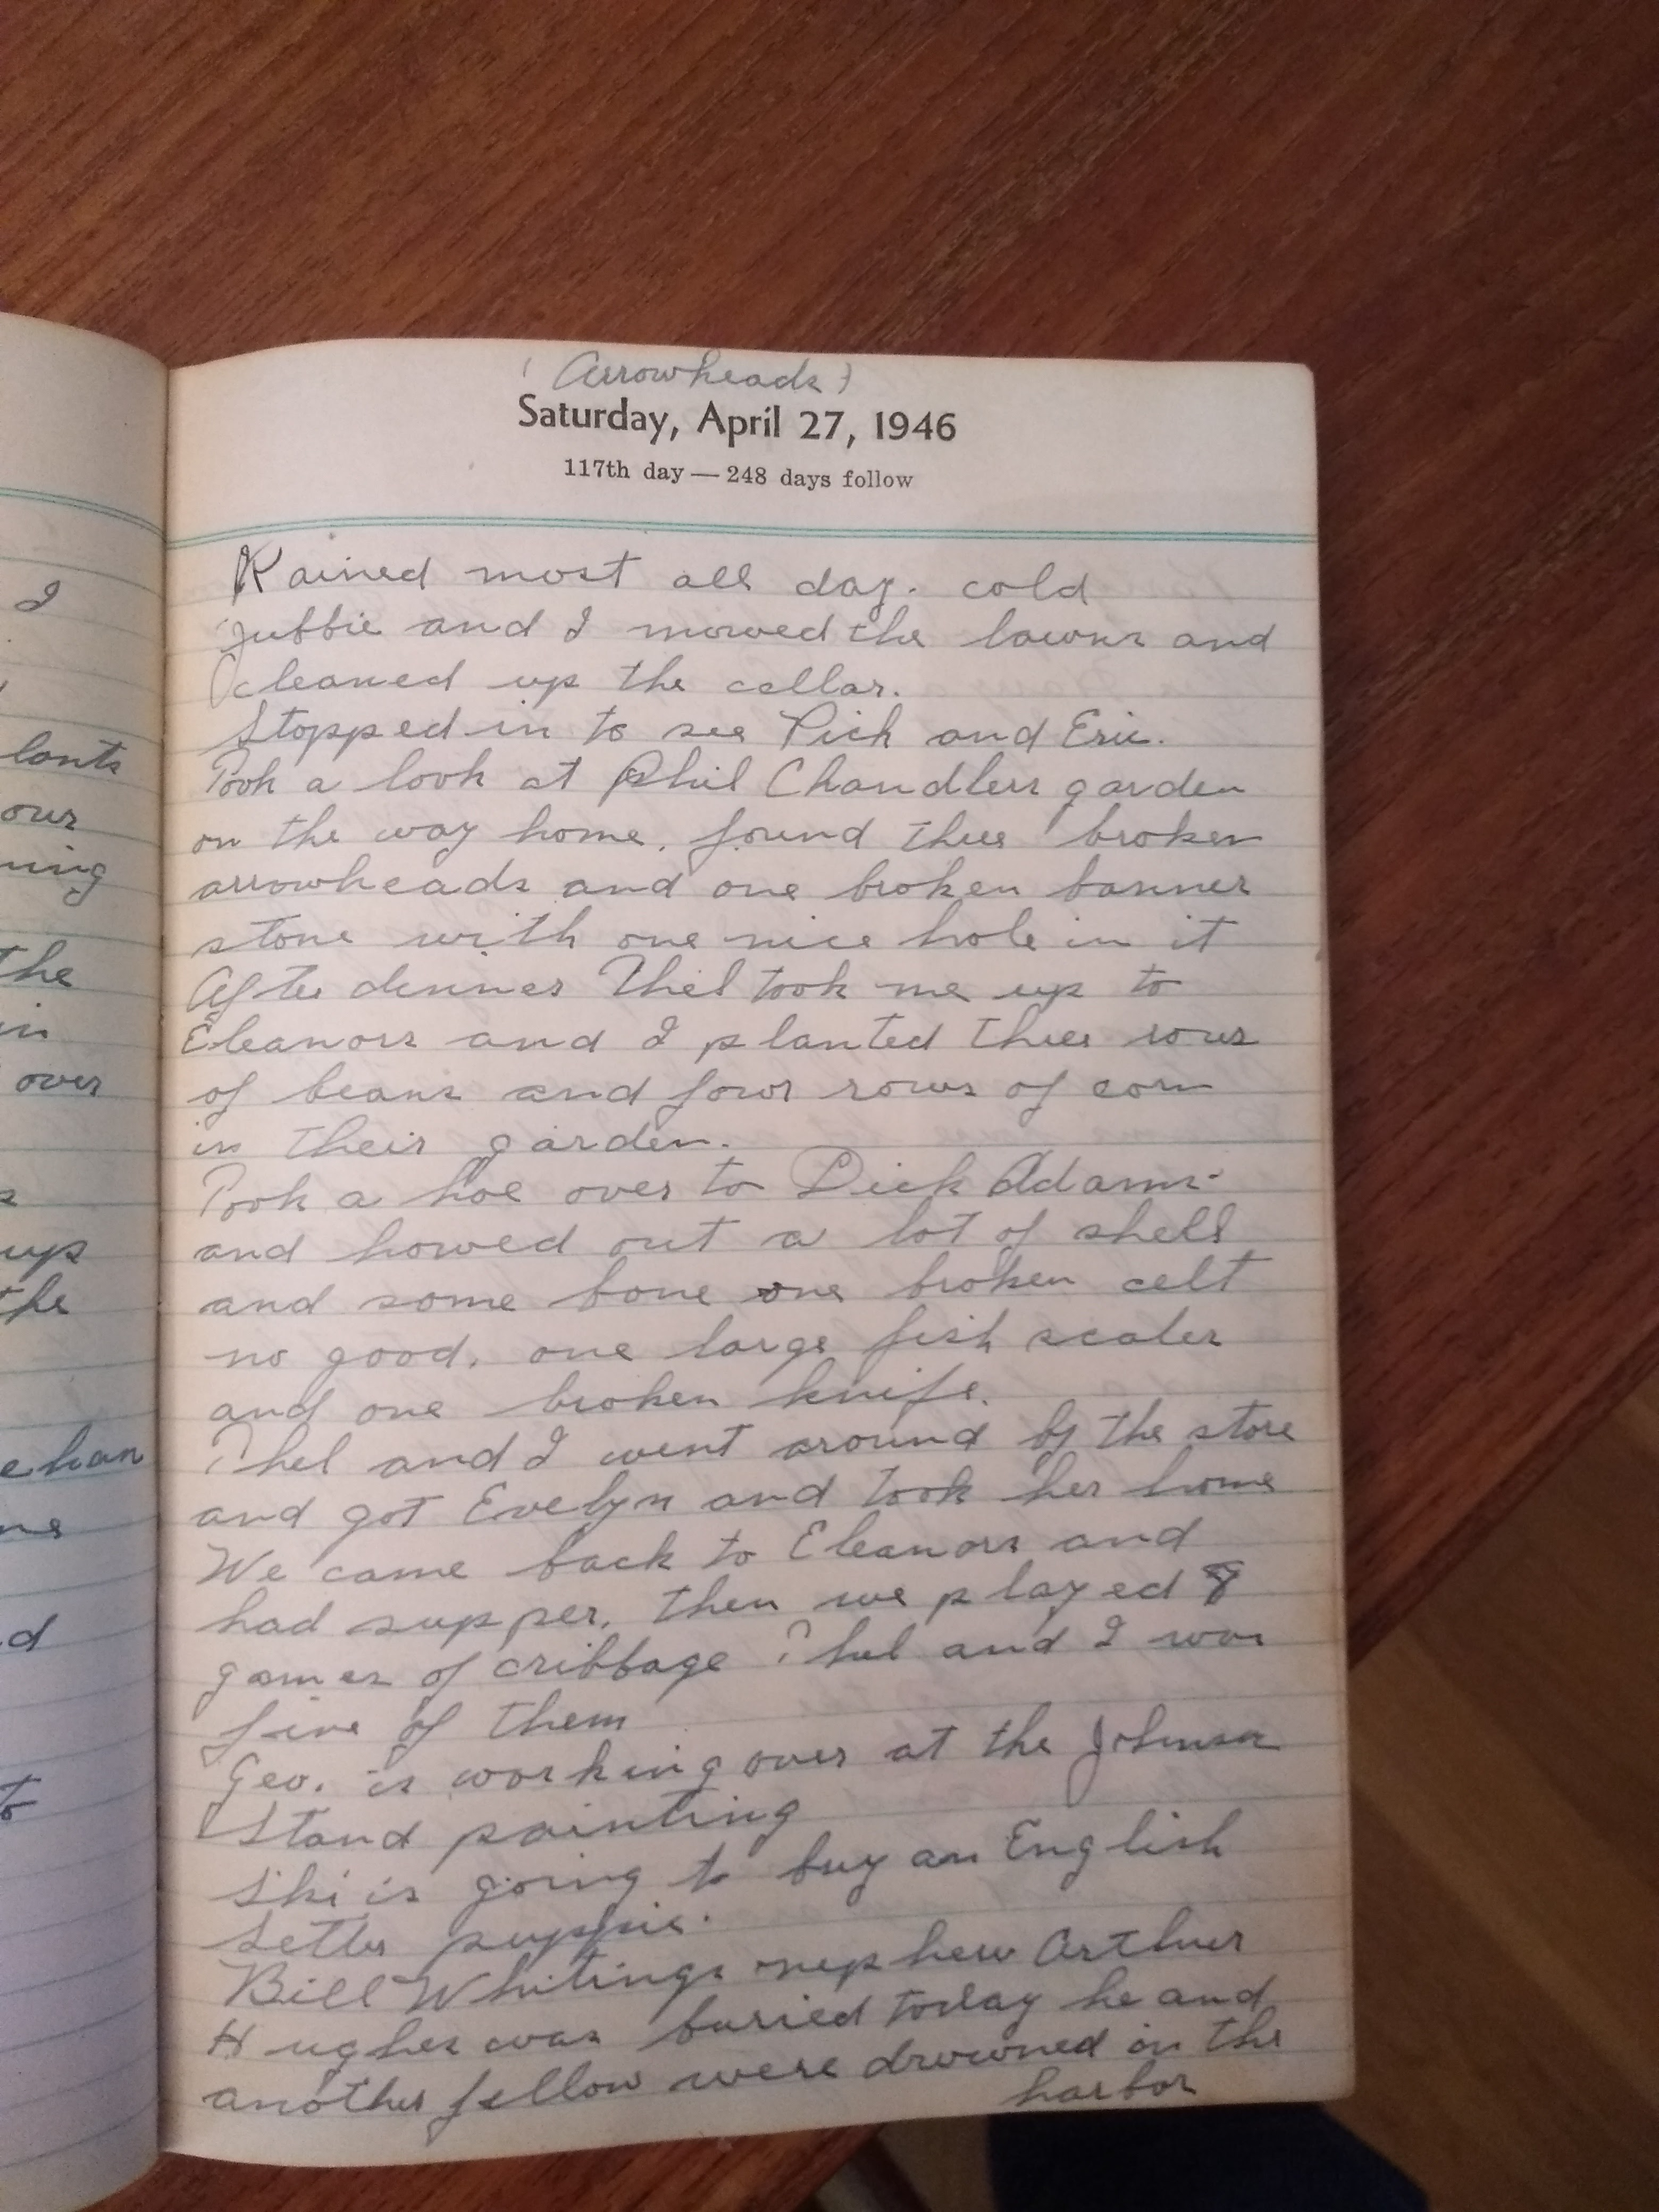 I
lants
our
ning
the
in
over
up
the
ehan
me
d
to
(Arrowheads)
Saturday, April 27, 1946
117th day — 248 days follow
Rained most all day. cold
Jubbie and I mowed the lawns and
cleaned up the cellar.
Stopped in to see Pick and Eric.
Took a look at Phil Chandlers garden
on the way home. found three broken
arrowheads and one broken banner
stone with one nice hole in it
After dinner Thel took me up to
Eleanors and I planted three rows
of beans and four rows of corn
in their garden.
Took a hoe over to Dick Adams
and howed out a lot of shell
and some bone one broken celt
no good. one large fish scaler
and one broken knife.
Thel and I went around by the store
and got Evelyn and took her home
We came back to Eleanors and
had supper. then we played 8
games of cribbage Thel and I won
five of them
Geo. is working over at the Johnson
Stand painting
Ski is going to buy an English
Setter puppie.
Bill Whitings nephew Arthur
Hughes was buried today he and
another fellow were drowned in the
harbor